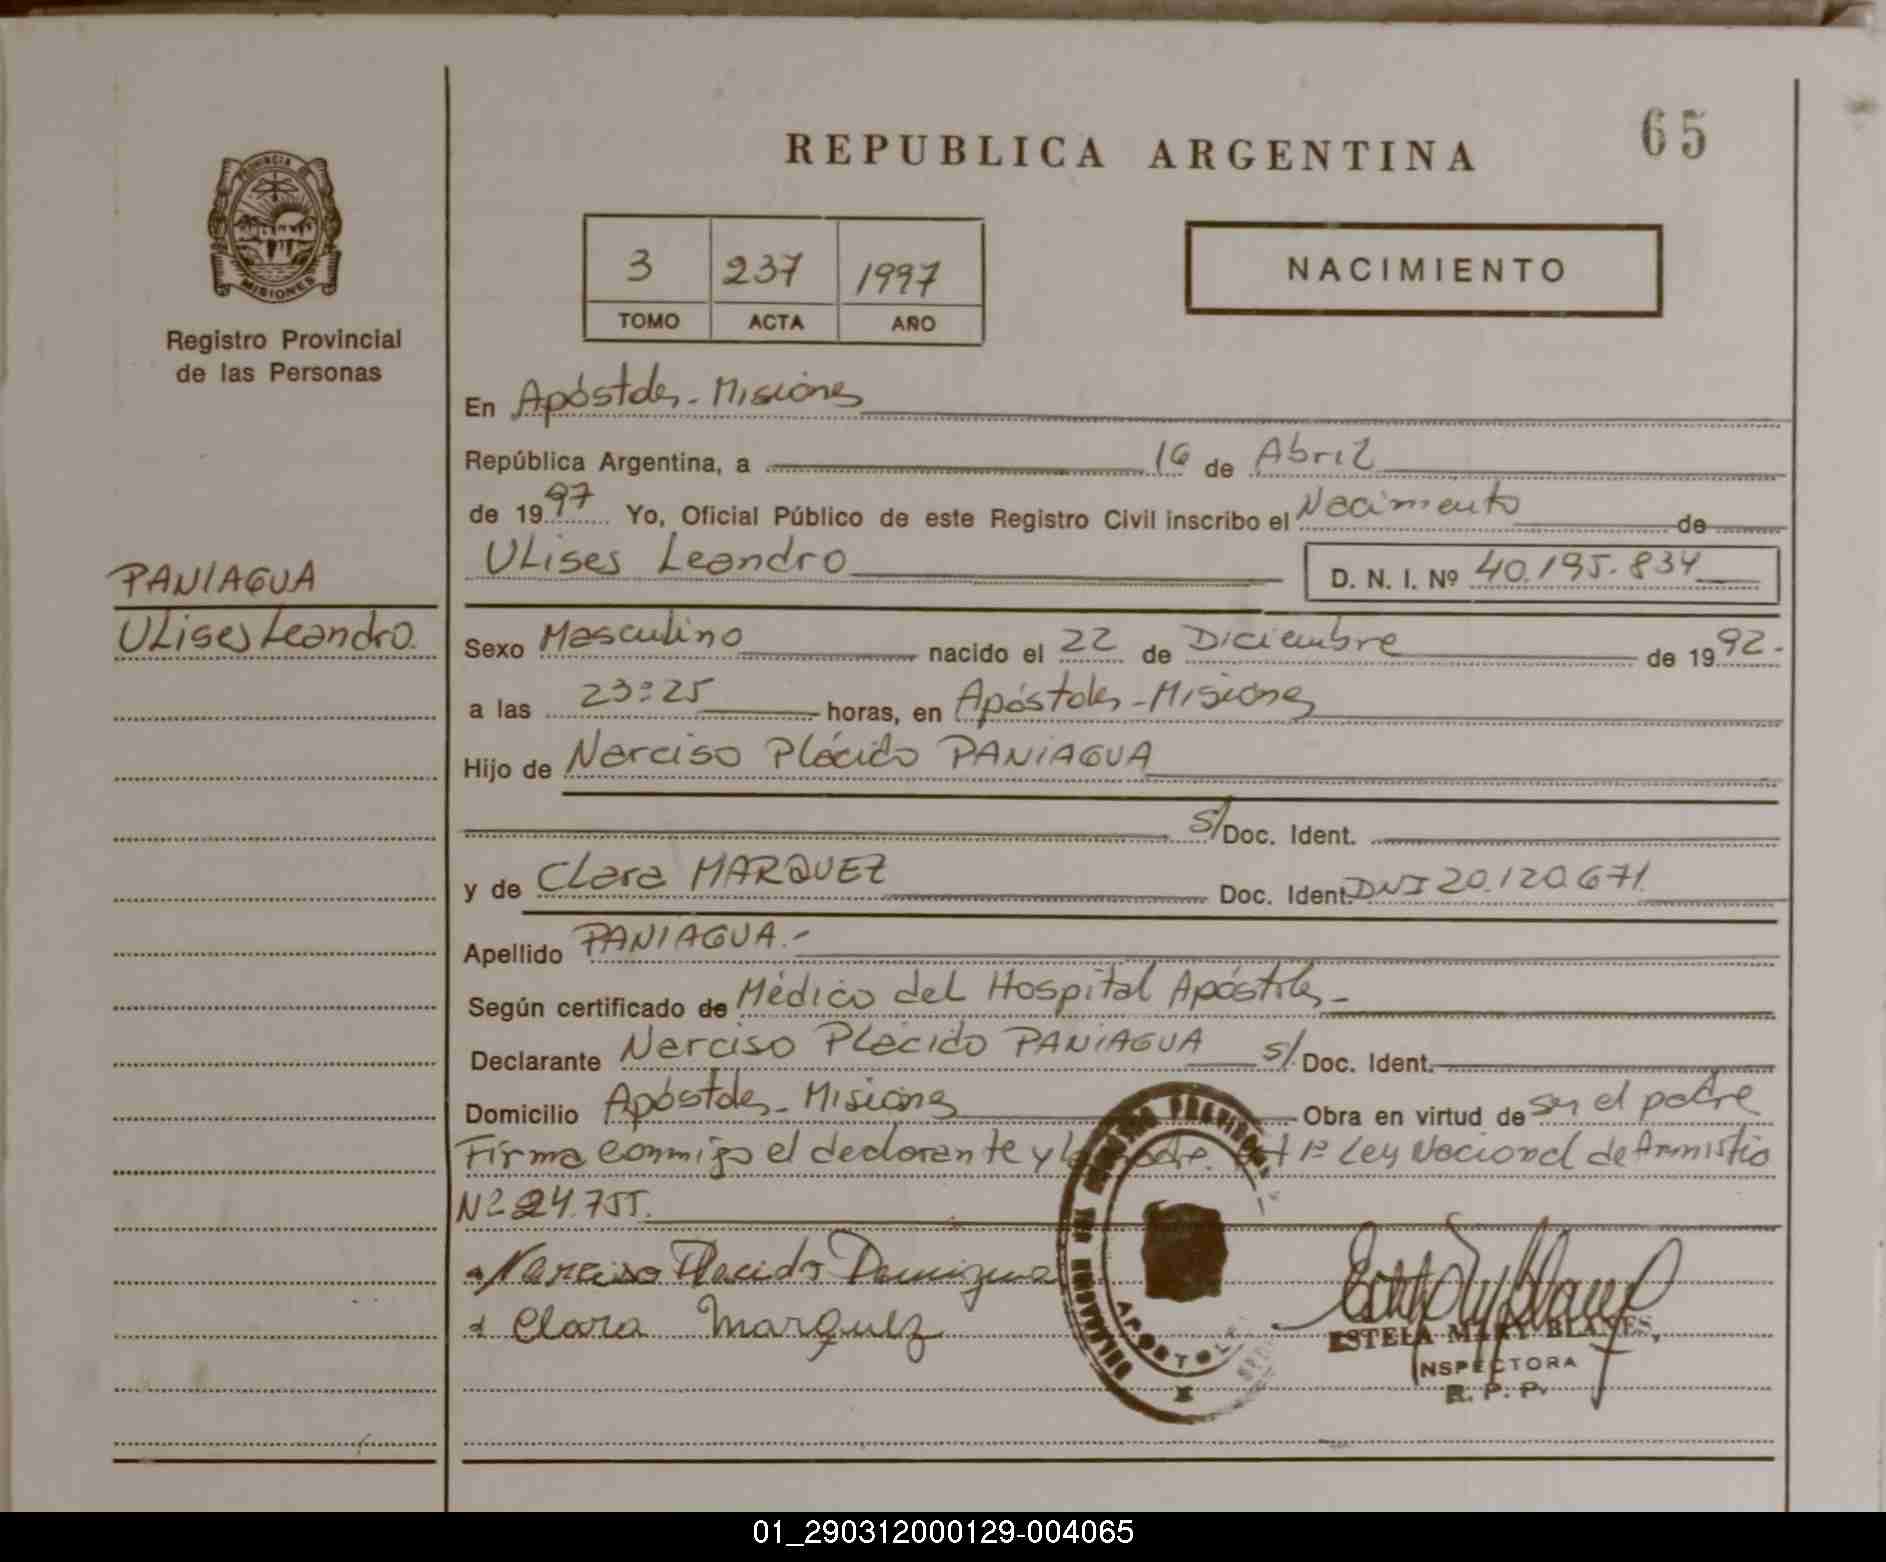 65
REPUBLICA ARGENTINA
PROVINCIA DE
MISIONES
Registro Provincial
de las Personas
3 237 1997
TOMO ACTA AÑO
NACIMIENTO
En Apóstoles - Misiones
República Argentina, a 16 de Abril
de 1997 Yo, Oficial Público de este Registro Civil inscribo el Nacimiento de
Ulises Leandro D. N. I. Nº 40.195.834
PANIAGUA
Ulises Leandro.
Sexo Masculino nacido el 22 de Diciembre de 1992.-
a las 23:25 horas, en Apóstoles - Misiones
Hijo de Narciso Plácido PANIAGUA
s/ Doc. Ident.
y de Clara MARQUEZ Doc. Ident. DNI 20.120.671
Apellido PANIAGUA.-
Según certificado de Médico del Hospital Apóstoles -
Declarante Narciso Plácido PANIAGUA s/. Doc. Ident.
Domicilio Apóstoles - Misiones Obra en virtud de ser el padre
Firma conmigo el declarante y la madre. Art 1º Ley Nacional de Amnistia
Nº 24.755.
Narciso Placido Paniagua
Clara Marquez
APOSTOLES
ESTELA MARY BLANES
INSPECTORA
R. P. P.
01_290312000129-004065